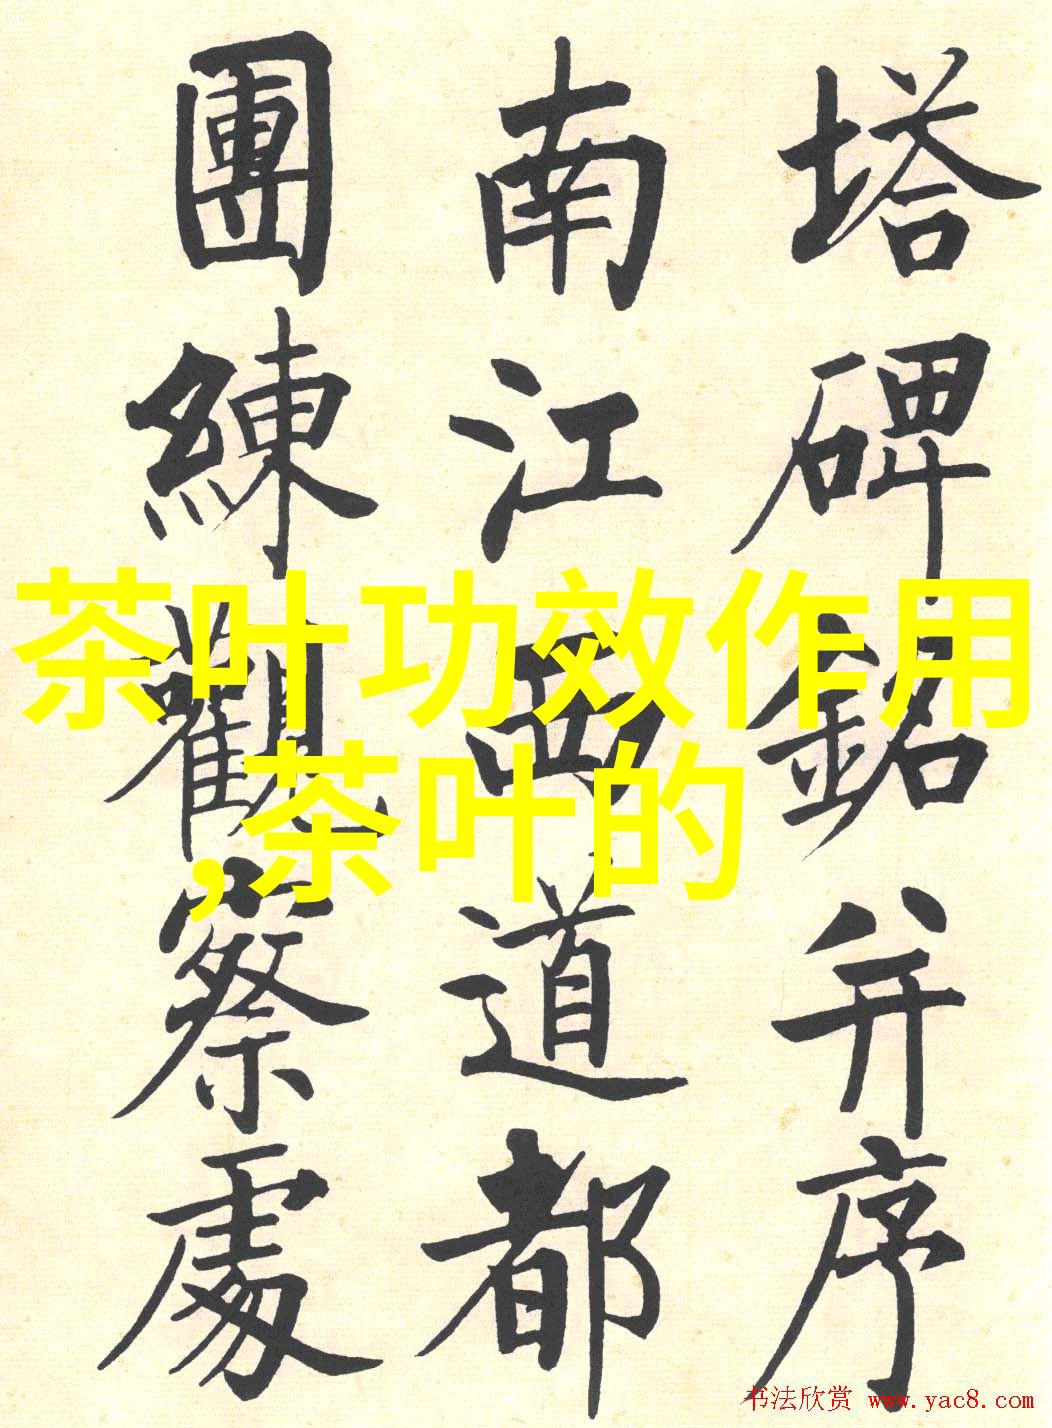 塔碑銘并序
南江西道都
團練觀察處
茶叶功效作用
,茶叶的
书法欣赏 www.yac8.com